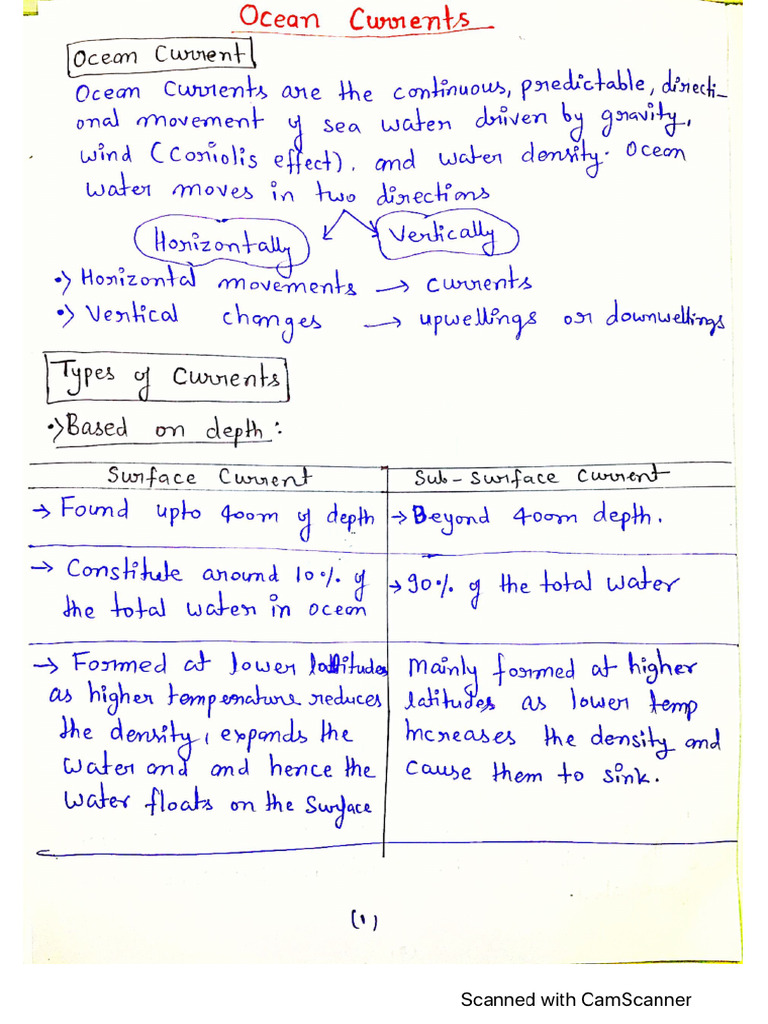 Ocean Currents
Ocean Current
Ocean Currents are the continuous, predictable, directi-
onal movement of sea water driven by gravity,
wind (Coriolis effect), and water density. Ocean
water moves in two directions
Horizontally
Vertically
•) Horizontal movements → currents
•) Vertical changes → upwellings or downwellings
Types of Currents
•) Based on depth :
Surface Current
Sub-Surface Current
→ Found upto 400m of depth
→ Beyond 400m depth.
→ Constitute around 10% of
the total water in ocean
→ 90% of the total water
→ Formed at lower latitudes
as higher temperature reduces
the density, expands the
water and and hence the
water floats on the surface
Mainly formed at higher
latitudes as lower temp
Increases the density and
cause them to sink.
(1)
Scanned with CamScanner